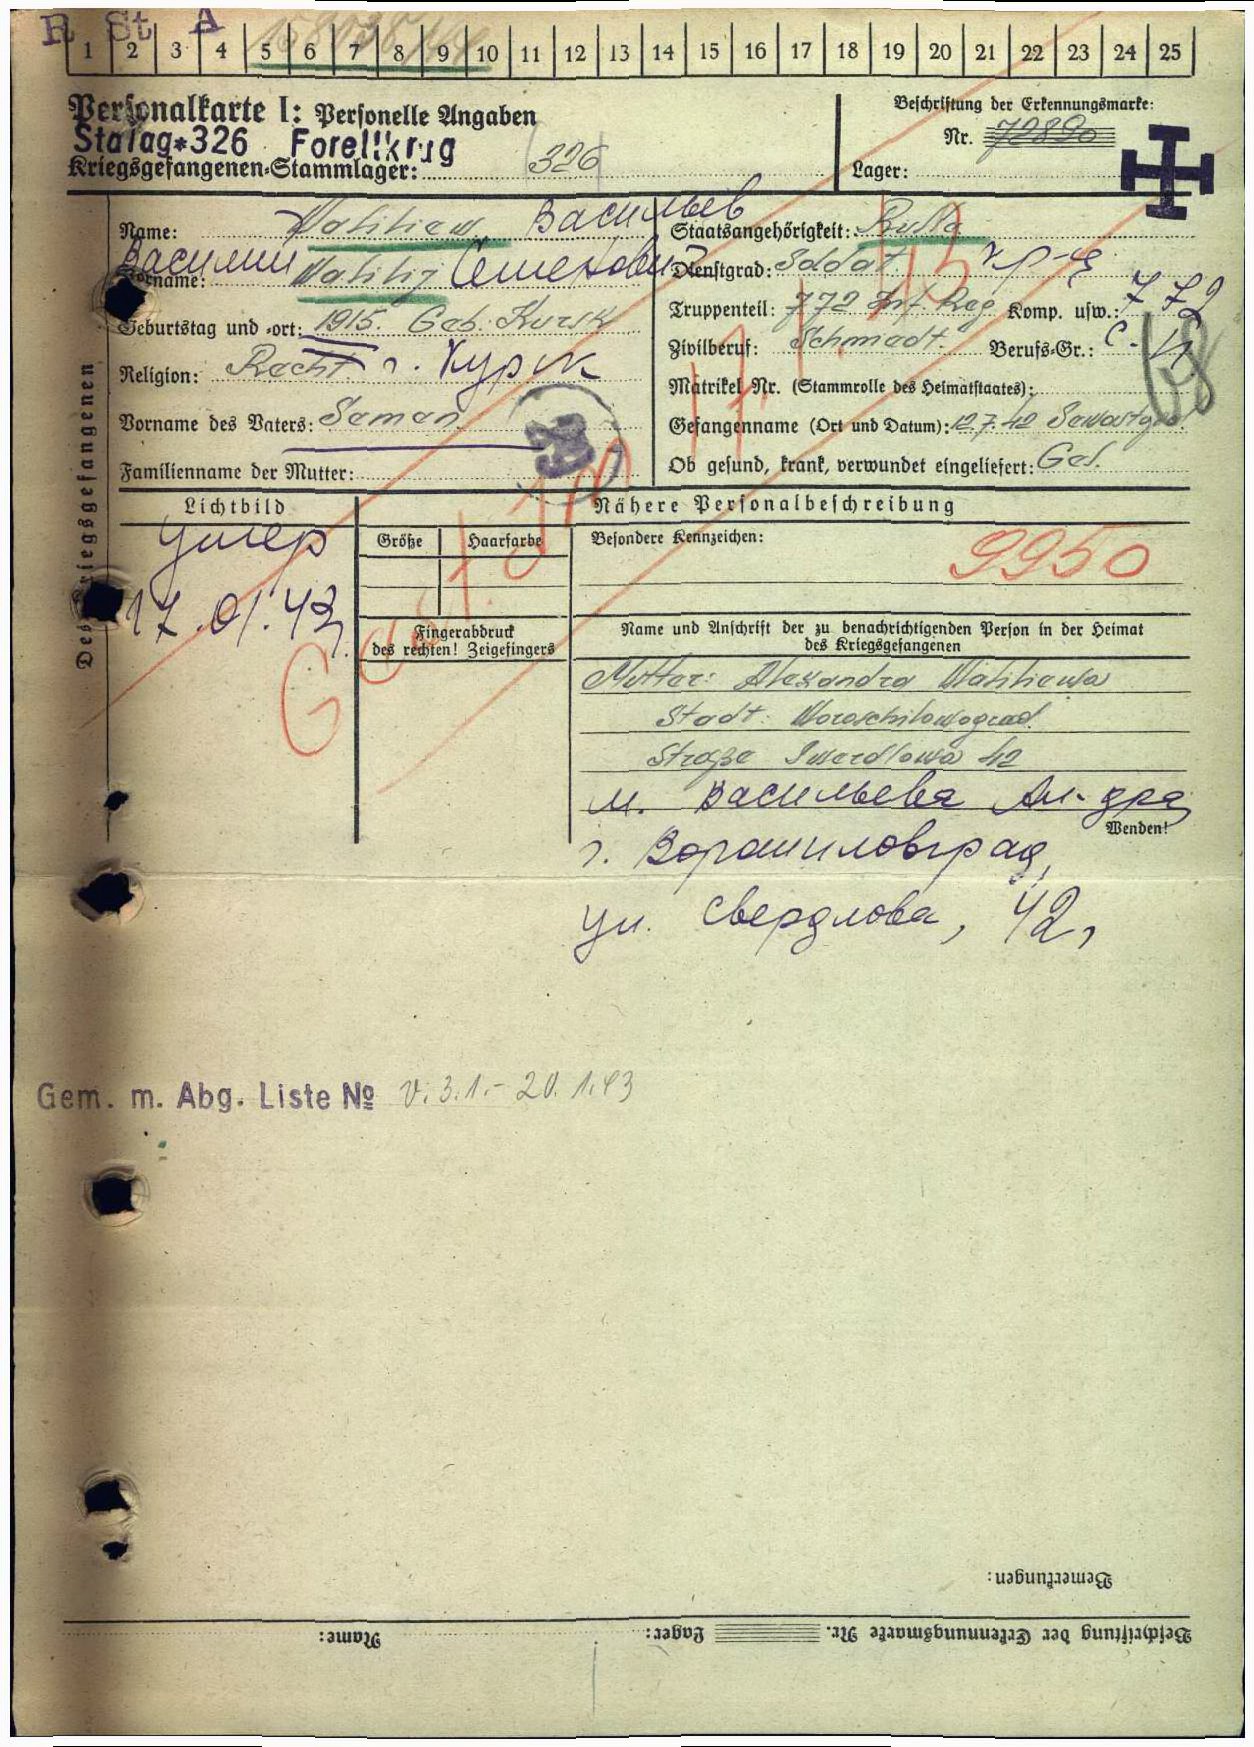 R St A
1 2 3 4 5 6 7 8 9 10 11 12 13 14 15 16 17 18 19 20 21 22 23 24 25
Personalkarte I: Personelle Angaben
Stalag*326 Forellkrug
Kriegsgefangenen-Stammlager: 326
Beschriftung der Erkennungsmarke:
Nr. 72890
Lager:
Des Kriegsgefangenen
Name: Васильев
Vorname: Василий Семенович
Geburtstag und -ort: 1915. Geb. Kursk
Religion: г. Курск
Vorname des Vaters: Seman
Familienname der Mutter:
Staatsangehörigkeit: Russe
Dienstgrad: Soldat кр-ц
Truppenteil: 772 Inf Reg Komp. usw.: 772
Zivilberuf: Schmidt. Berufs-Gr.: С. п
68
Matrikel Nr. (Stammrolle des Heimatstaates):
Gefangenname (Ort und Datum): 12.7.42 Sewastopol
Ob gesund, krank, verwundet eingeliefert: Ges.
Lichtbild
умер
17.01.43
Gest. Im 17.1.43
Nähere Personalbeschreibung
Größe Haarfarbe
Besondere Kennzeichen:
9950
Fingerabdruck
des rechten! Zeigefingers
Name und Anschrift der zu benachrichtigenden Person in der Heimat
des Kriegsgefangenen
Mutter: Alexandra Wasiliewa
Stadt: Woroschilowograd.
Straße Swerdlowa 42
м. Васильева Ал-дра
Wenden!
г. Ворошиловград,
ул. Свердлова, 42,
Gem. m. Abg. Liste № v. 3.1.- 20.1.43
Bemerkungen:
Beschriftung der Erkennungsmarke Nr. Lager: Name: